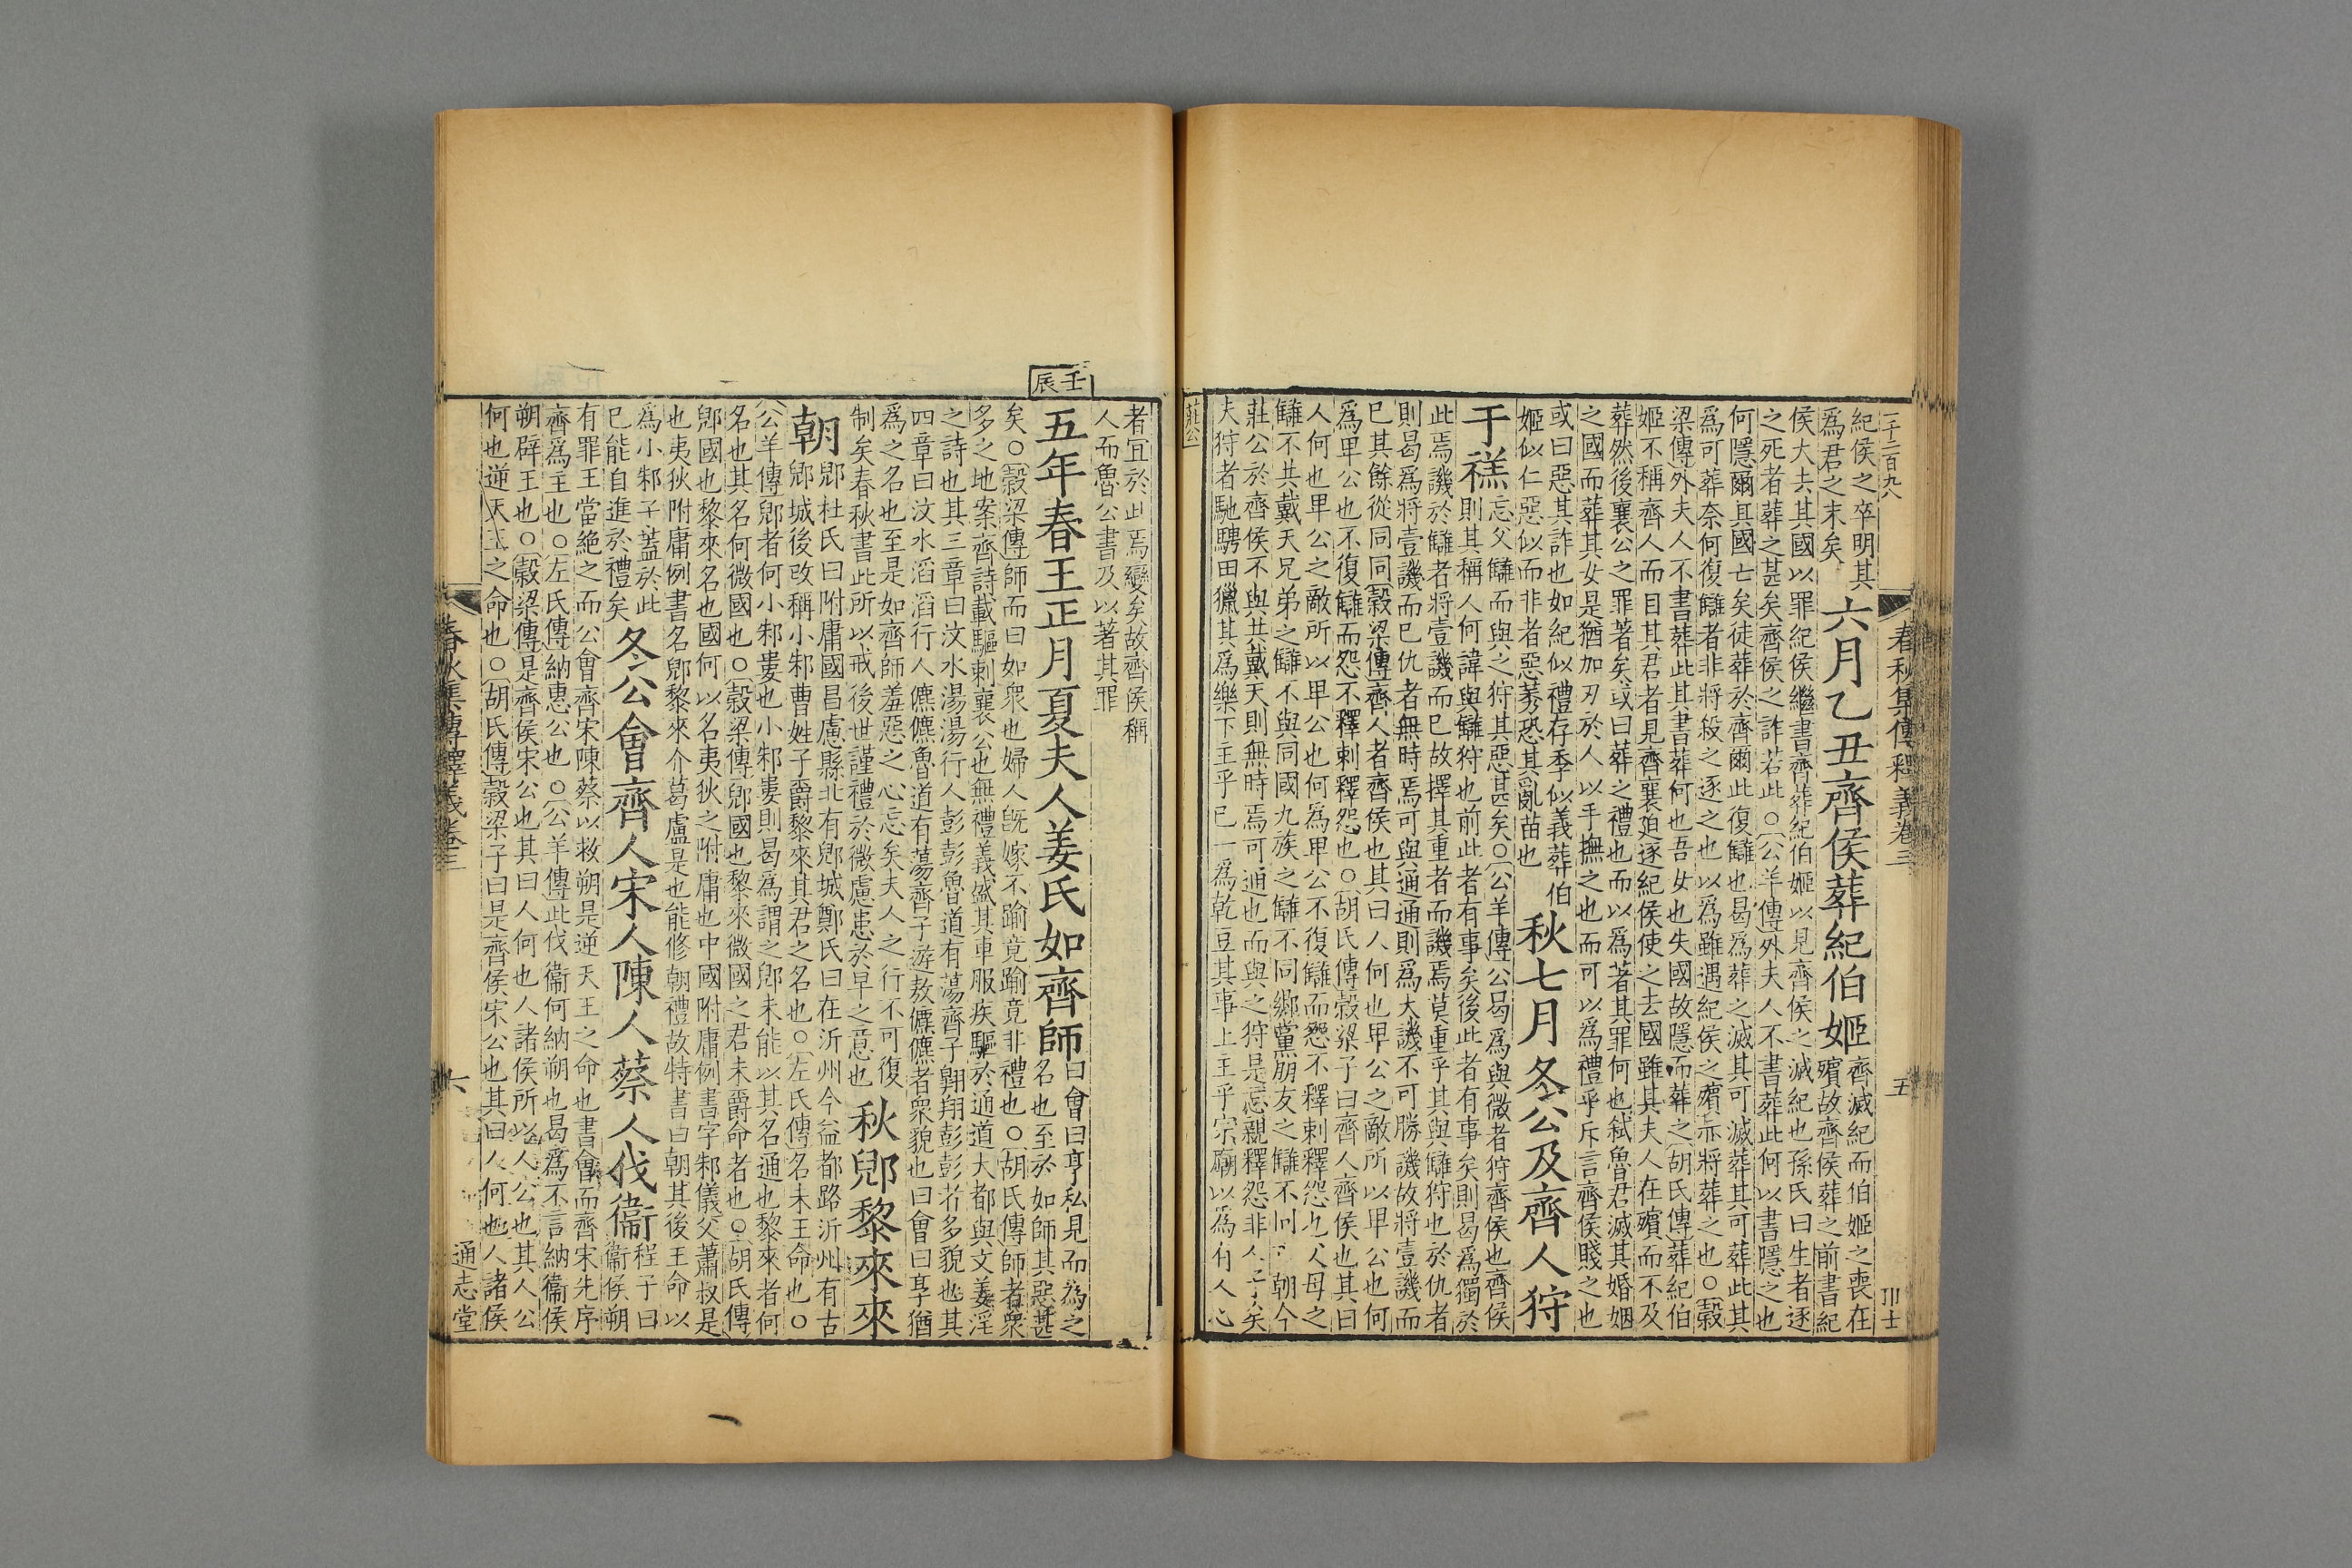 二千二百九八
春秋集傳釋義卷三
五
紀侯之卒明其
爲君之末矣
六月乙丑齊侯葬紀伯姬
齊滅紀而伯姬之喪在
殯故齊侯葬之前書紀
侯大夫其國以罪紀侯繼書齊葬紀伯姬以見齊侯之滅紀也孫氏曰生者逐
之死者葬之甚矣齊侯之詐若此○公羊傳外夫人不書葬此何以書隱之也
何隱爾其國亡矣徒葬於齊爾此復讎也曷爲葬之滅其可滅葬其可葬此其
爲可葬奈何復讎者非將殺之逐之也以爲雖遇紀侯之殯亦將葬之也○穀
梁傳外夫人不書葬此其書葬何也吾女也失國故隱而葬之胡氏傳葬紀伯
姬不稱齊人而目其君者見齊襄迫逐紀侯使之去國雖其夫人在殯而不及
葬然後襄公之罪著矣或曰葬之禮也而以爲著其罪何也弑魯君滅其婚姻
之國而葬其女是猶加刃於人以手撫之也而可以爲禮乎斥言齊侯賤之也
或曰惡其詐也如紀似禮存季似義葬伯
姬似仁惡似而非者惡莠恐其亂苗也
秋七月冬公及齊人狩
于禚
忘父讎而與之狩其惡甚矣○公羊傳公曷爲與微者狩齊侯也齊侯
則其稱人何諱與讎狩也前此者有事矣後此者有事矣則曷爲獨於
此焉譏於讎者將壹譏而已故擇其重者而譏焉莫重乎其與讎狩也於仇者
則曷爲將壹譏而已仇者無時焉可與通通則爲大譏不可勝譏故將壹譏而
已其餘從同同穀梁傳齊人者齊侯也其曰人何也卑公之敵所以卑公也何
爲卑公也不復讎而怨不釋刺釋怨也○胡氏傳穀梁子曰齊人齊侯也其曰
人何也卑公之敵所以卑公也何爲卑公不復讎而怨不釋刺釋怨也父母之
讎不共戴天兄弟之讎不與同國九族之讎不同鄉黨朋友之讎不同市朝今
莊公於齊侯不與共戴天則無時焉可通也而與之狩是忘親釋怨非人子矣
夫狩者馳騁田獵其爲樂下主乎己一爲乾豆其事上主乎宗廟以爲有人心
莊公
者宜於此焉變矣故齊侯稱
人而魯公書及以著其罪
壬辰
五年春王正月夏夫人姜氏如齊師
曰會曰享私見而為之
名也至於如師其惡甚
矣○穀梁傳師而曰如衆也婦人既嫁不踰竟踰竟非禮也○胡氏傳師者衆
多之地案齊詩載驅刺襄公也無禮義盛其車服疾驅於通道大都與文姜淫
之詩也其三章曰汶水湯湯行人彭彭魯道有蕩齊子翱翔彭彭者多貌也其
四章曰汶水滔滔行人儦儦魯道有蕩齊子遊敖儦儦者衆貌也曰會曰享猶
爲之名也至是如齊師羞惡之心忘矣夫人之行不可復
制矣春秋書此所以戒後世謹禮於微慮患於早之意也
秋郳黎來來
朝
郳杜氏曰附庸國昌慮縣北有郳城鄭氏曰在沂州今益都路沂州有古
郳城後改稱小邾曹姓子爵黎來其君之名也○左氏傳名未王命也○
公羊傳郳者何小邾婁也小邾婁則曷爲謂之郳未能以其名通也黎來者何
名也其名何微國也○穀梁傳郳國也黎來微國之君未爵命者也○胡氏傳
郳國也黎來名也國何以名夷狄之附庸也中國附庸例書字邾儀父蕭叔是
也夷狄附庸例書名郳黎來介葛盧是也能修朝禮故特書曰朝其後王命以
為小邾子蓋於此
已能自進於禮矣
冬公會齊人宋人陳人蔡人伐衞
程子曰
衞侯朔
有罪王當絶之而公會齊宋陳蔡以救朔是逆天王之命也書會而齊宋先序
齊爲主也○左氏傳納惠公也○公羊傳此伐衞何納朔也曷爲不言納衞侯
朔辟王也○穀梁傳是齊侯宋公也其曰人何也人諸侯所以人公也其人公
何也逆天王之命也○胡氏傳穀梁子曰是齊侯宋公也其曰人何也人諸侯
春秋集傳釋義卷三
六
通志堂